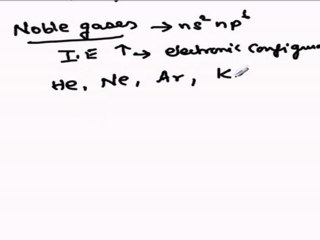 Noble gases → ns² np⁶
I.E ↑ → electronic configu
He, Ne, Ar, K